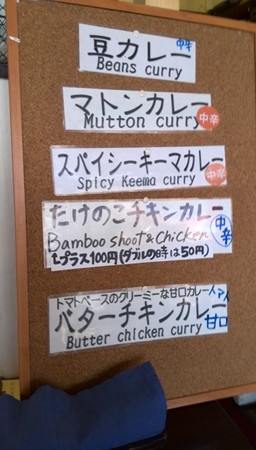 豆カレー 中辛
Beans curry
マトンカレー
Mutton curry 中辛
スパイシーキーマカレー
Spicy Keema curry 中辛
たけのこチキンカレー
Bamboo shoot & Chicken 中辛
プラス100円(ダブルの時は50円)
トマトベースのクリーミーな甘口カレー
バターチキンカレー 甘口
Butter chicken curry